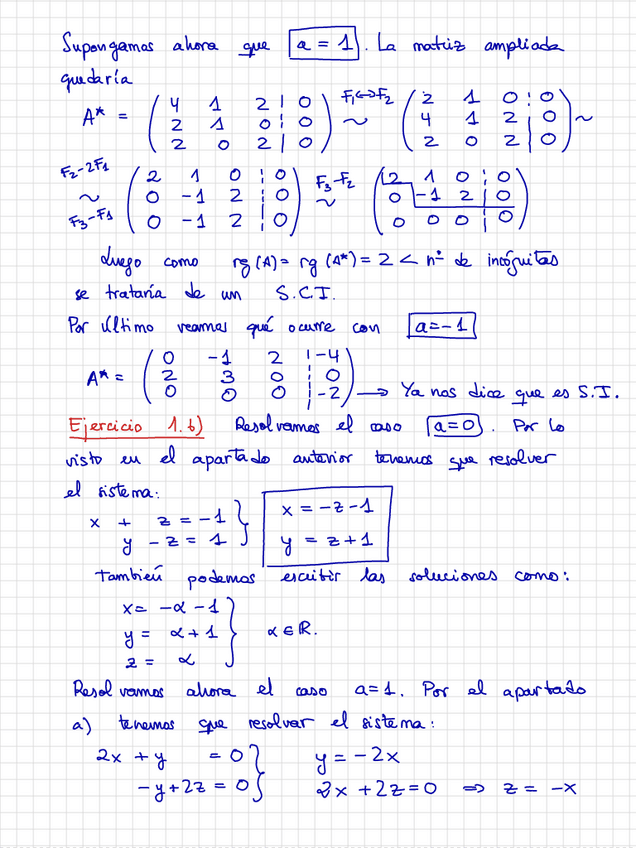 Supongamos ahora que a = 1. La matriz ampliada
quedaría
A* = ( 4 1 2 | 0 ) F1↔F2 ( 2 1 0 | 0 )
( 2 1 0 | 0 ) ~ ( 4 1 2 | 0 ) ~
( 2 0 2 | 0 ) ( 2 0 2 | 0 )
F2-2F1 ( 2 1 0 | 0 ) F3-F2 ( 2 1 0 | 0 )
~ ( 0 -1 2 | 0 ) ~ ( 0 -1 2 | 0 )
F3-F1 ( 0 -1 2 | 0 ) ( 0 0 0 | 0 )
Luego como rg(A) = rg(A*) = 2 < nº de incógnitas
se trataría de un S.C.I.
Por último veamos qué ocurre con a=-1
A* = ( 0 -1 2 | -4 )
( 2 3 0 | 0 )
( 0 0 0 | -2 ) → Ya nos dice que es S.I.
Ejercicio 1.b) Resolvamos el caso a=0. Por lo
visto en el apartado anterior tenemos que resolver
el sistema:
x + z = -1 } x = -z-1
y - z = 1 } y = z+1
también podemos escribir las soluciones como:
x = -α - 1
y = α + 1 } α ∈ ℝ.
z = α
Resolvamos ahora el caso a=1. Por el apartado
a) tenemos que resolver el sistema:
2x + y = 0 } y = -2x
-y+2z = 0 } 2x + 2z = 0 ⇒ z = -x